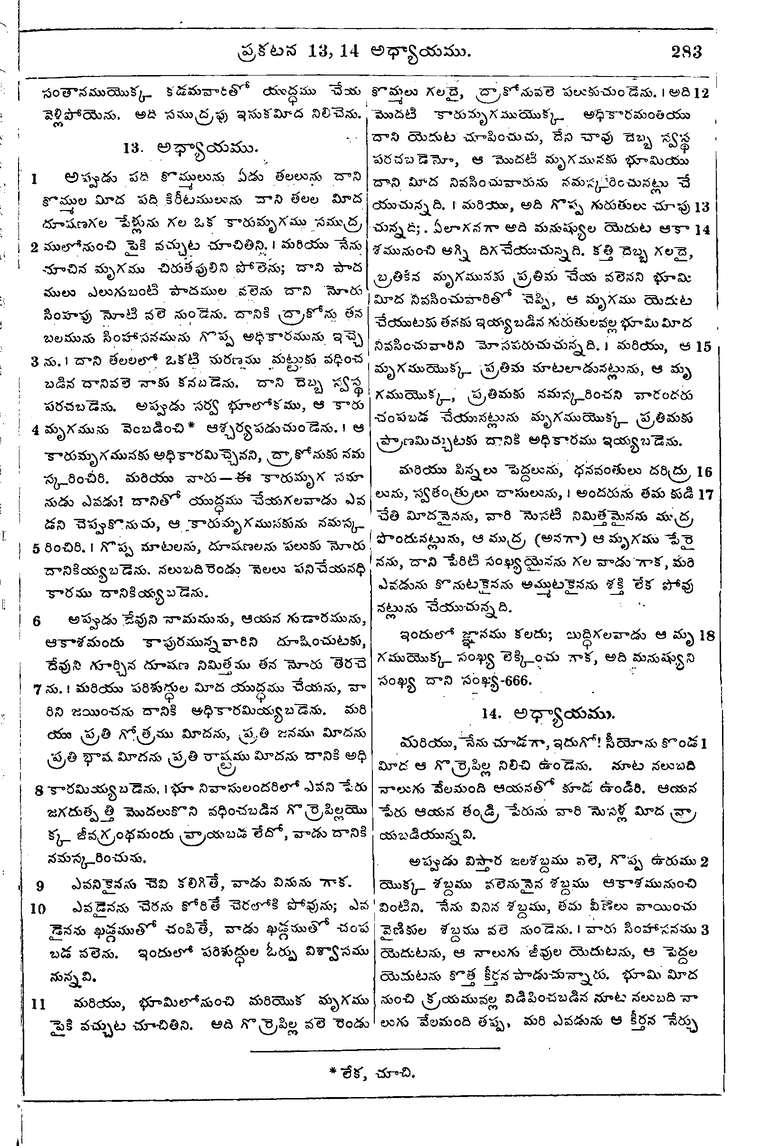 ప్రకటన 13, 14 అధ్యాయము. 283
సంతానముయొక్క కడమవారితో యుద్ధము చేయ
వెళ్లిపోయెను. అది సముద్రపు ఇసుకమీద నిలిచెను.
13. అధ్యాయము.
1 అప్పుడు పది కొమ్ములును ఏడు తలలును దాని
కొమ్ముల మీద పది కిరీటములును దాని తలల మీద
దూషణగల పేళ్లును గల ఒక కారుమృగము సముద్ర
2 ములోనుంచి పైకి వచ్చుట చూచితిని. । మరియు నేను
చూచిన మృగము చిరుతపులిని పోలెను; దాని పాద
ములు ఎలుగుబంటి పాదముల వలెను దాని నోరు
సింహపు నోటి వలె నుండెను. దానికి ద్రాకోను తన
బలమును సింహాసనమును గొప్ప అధికారమును ఇచ్చె
3 ను. । దాని తలలలో ఒకటి మరణము మట్టుకు వధించ
బడిన దానివలె నాకు కనబడెను. దాని దెబ్బ స్వస్థ
పరచబడెను. అప్పుడు సర్వ భూలోకము, ఆ కారు
4 మృగమును వెంబడించి* ఆశ్చర్యపడుచుండెను. । ఆ
కారుమృగమునకు అధికారమిచ్చెనని, ద్రాకోనుకు నమ
స్కరించిరి. మరియు వారు—ఈ కారుమృగ సమా
నుడు ఎవడు? దానితో యుద్ధము చేయగలవాడు ఎవ
డని చెప్పుకొనుచు, ఆ కారుమృగమునకును నమస్క
5 రించిరి. । గొప్ప మాటలను, దూషణలను పలుకు నోరు
దానికియ్యబడెను. నలుబదిరెండు నెలలు పనిచేయనధి
కారము దానికియ్యబడెను.
6 అప్పుడు దేవుని నామమును, ఆయన గుడారమును,
ఆకాశమందు కాపురమున్నవారిని దూషించుటకు,
దేవుని గూర్చిన దూషణ నిమిత్తము తన నోరు తెరచె
7 ను. । మరియు పరిశుద్ధుల మీద యుద్ధము చేయను, వా
రిని జయించను దానికి అధికారమియ్యబడెను. మరి
యు ప్రతి గోత్రము మీదను, ప్రతి జనము మీదను
ప్రతి భాష మీదను ప్రతి రాష్ట్రము మీదను దానికి అధి
8 కారమియ్యబడెను. । భూ నివాసులందరిలో ఎవని పేరు
జగదుత్పత్తి మొదలుకొని వధించబడిన గొఱ్ఱెపిల్లయొ
క్క జీవగ్రంథమందు వ్రాయబడ లేదో, వాడు దానికి
నమస్కరించును.
9 ఎవనికైనను చెవి కలిగితే, వాడు వినును గాక.
10 ఎవడైనను చెరను కోరితే చెరలోకి పోవును; ఎవ
డైనను ఖడ్గముతో చంపితే, వాడు ఖడ్గముతో చంప
బడ వలెను. ఇందులో పరిశుద్ధుల ఓర్పు విశ్వాసము
నున్నవి.
11 మరియు, భూమిలోనుంచి మరియొక మృగము
పైకి వచ్చుట చూచితిని. అది గొఱ్ఱెపిల్ల వలె రెండు
కొమ్ములు గలదై, ద్రాకోనువలె పలుకుచుండెను. । అది 12
మొదటి కారుమృగముయొక్క అధికారమంతియు
దాని యెదుట చూపించుచు, దేని చావు దెబ్బ స్వస్థ
పరచబడెనో, ఆ మొదటి మృగమునకు భూమియు
దాని మీద నివసించువారును నమస్కరించునట్లు చే
యుచున్నది. । మరియు, అది గొప్ప గురుతులు చూపు 13
చున్నది;. ఏలాగనగా అది మనుష్యుల యెదుట ఆకా 14
శమునుంచి అగ్ని దిగచేయుచున్నది. కత్తి దెబ్బ గలదై,
బ్రతికిన మృగమునకు ప్రతిమ చేయ వలెనని భూమి
మీద నివసించువారితో చెప్పి, ఆ మృగము యెదుట
చేయుటకు తనకు ఇయ్యబడిన గురుతులవల్ల భూమిమీద
నివసించువారిని మోసపరుచుచున్నది. । మరియు, ఆ 15
మృగముయొక్క ప్రతిమ మాటలాడునట్లును, ఆ మృ
గముయొక్క, ప్రతిమకు నమస్కరించని వారందరు
చంపబడ చేయునట్లును మృగముయొక్క ప్రతిమకు
ప్రాణమిచ్చుటకు దానికి అధికారము ఇయ్యబడెను.
మరియు పిన్నలు పెద్దలును, ధనవంతులు దరిద్రు 16
లును, స్వతంత్రులు దాసులును, । అందరును తమ కుడి 17
చేతి మీదనైనను, వారి నొసటి నిమిత్తమైనను ముద్ర
పొందునట్లును, ఆ ముద్ర (అనగా) ఆ మృగము పేరై
నను, దాని పేరిటి సంఖ్యయైనను గల వాడు గాక, మరి
ఎవడును కొనుటకైనను అమ్ముటకైనను శక్తి లేక పోవు
నట్లును చేయుచున్నది.
ఇందులో జ్ఞానము కలదు; బుద్ధిగలవాడు ఆ మృ 18
గముయొక్క సంఖ్య లెక్కించు గాక, అది మనుష్యుని
సంఖ్య దాని సంఖ్య-666.
14. అధ్యాయము.
మరియు, నేను చూడగా, ఇదుగో! సీయోను కొండ 1
మీద ఆ గొఱ్ఱెపిల్ల నిలిచి ఉండెను. నూట నలుబది
నాలుగు వేలమంది ఆయనతో కూడ ఉండిరి. ఆయన
పేరు ఆయన తండ్రి పేరును వారి నొసళ్ల మీద వ్రా
యబడియున్నవి.
అప్పుడు విస్తార జలశబ్దము వలె, గొప్ప ఉరుము 2
యొక్క శబ్దము వలెనునైన శబ్దము ఆకాశమునుంచి
వింటిని. నేను వినిన శబ్దము, తమ వీణెలు వాయించు
వైణికుల శబ్దము వలె నుండెను. । వారు సింహాసనము 3
యెదుటను, ఆ నాలుగు జీవుల యెదుటను, ఆ పెద్దల
యెదుటను కొత్త కీర్తన పాడుచున్నారు. భూమి మీద
నుంచి క్రయమువల్ల విడిపించబడిన నూట నలుబది నా
లుగు వేలమంది తప్ప, మరి ఎవడును ఆ కీర్తన నేర్చు
* లేక, చూచి.